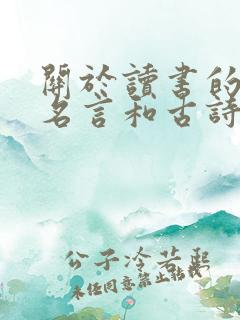 關於讀書的
名言和古詩
公子冷若熙
未經同意禁止轉載